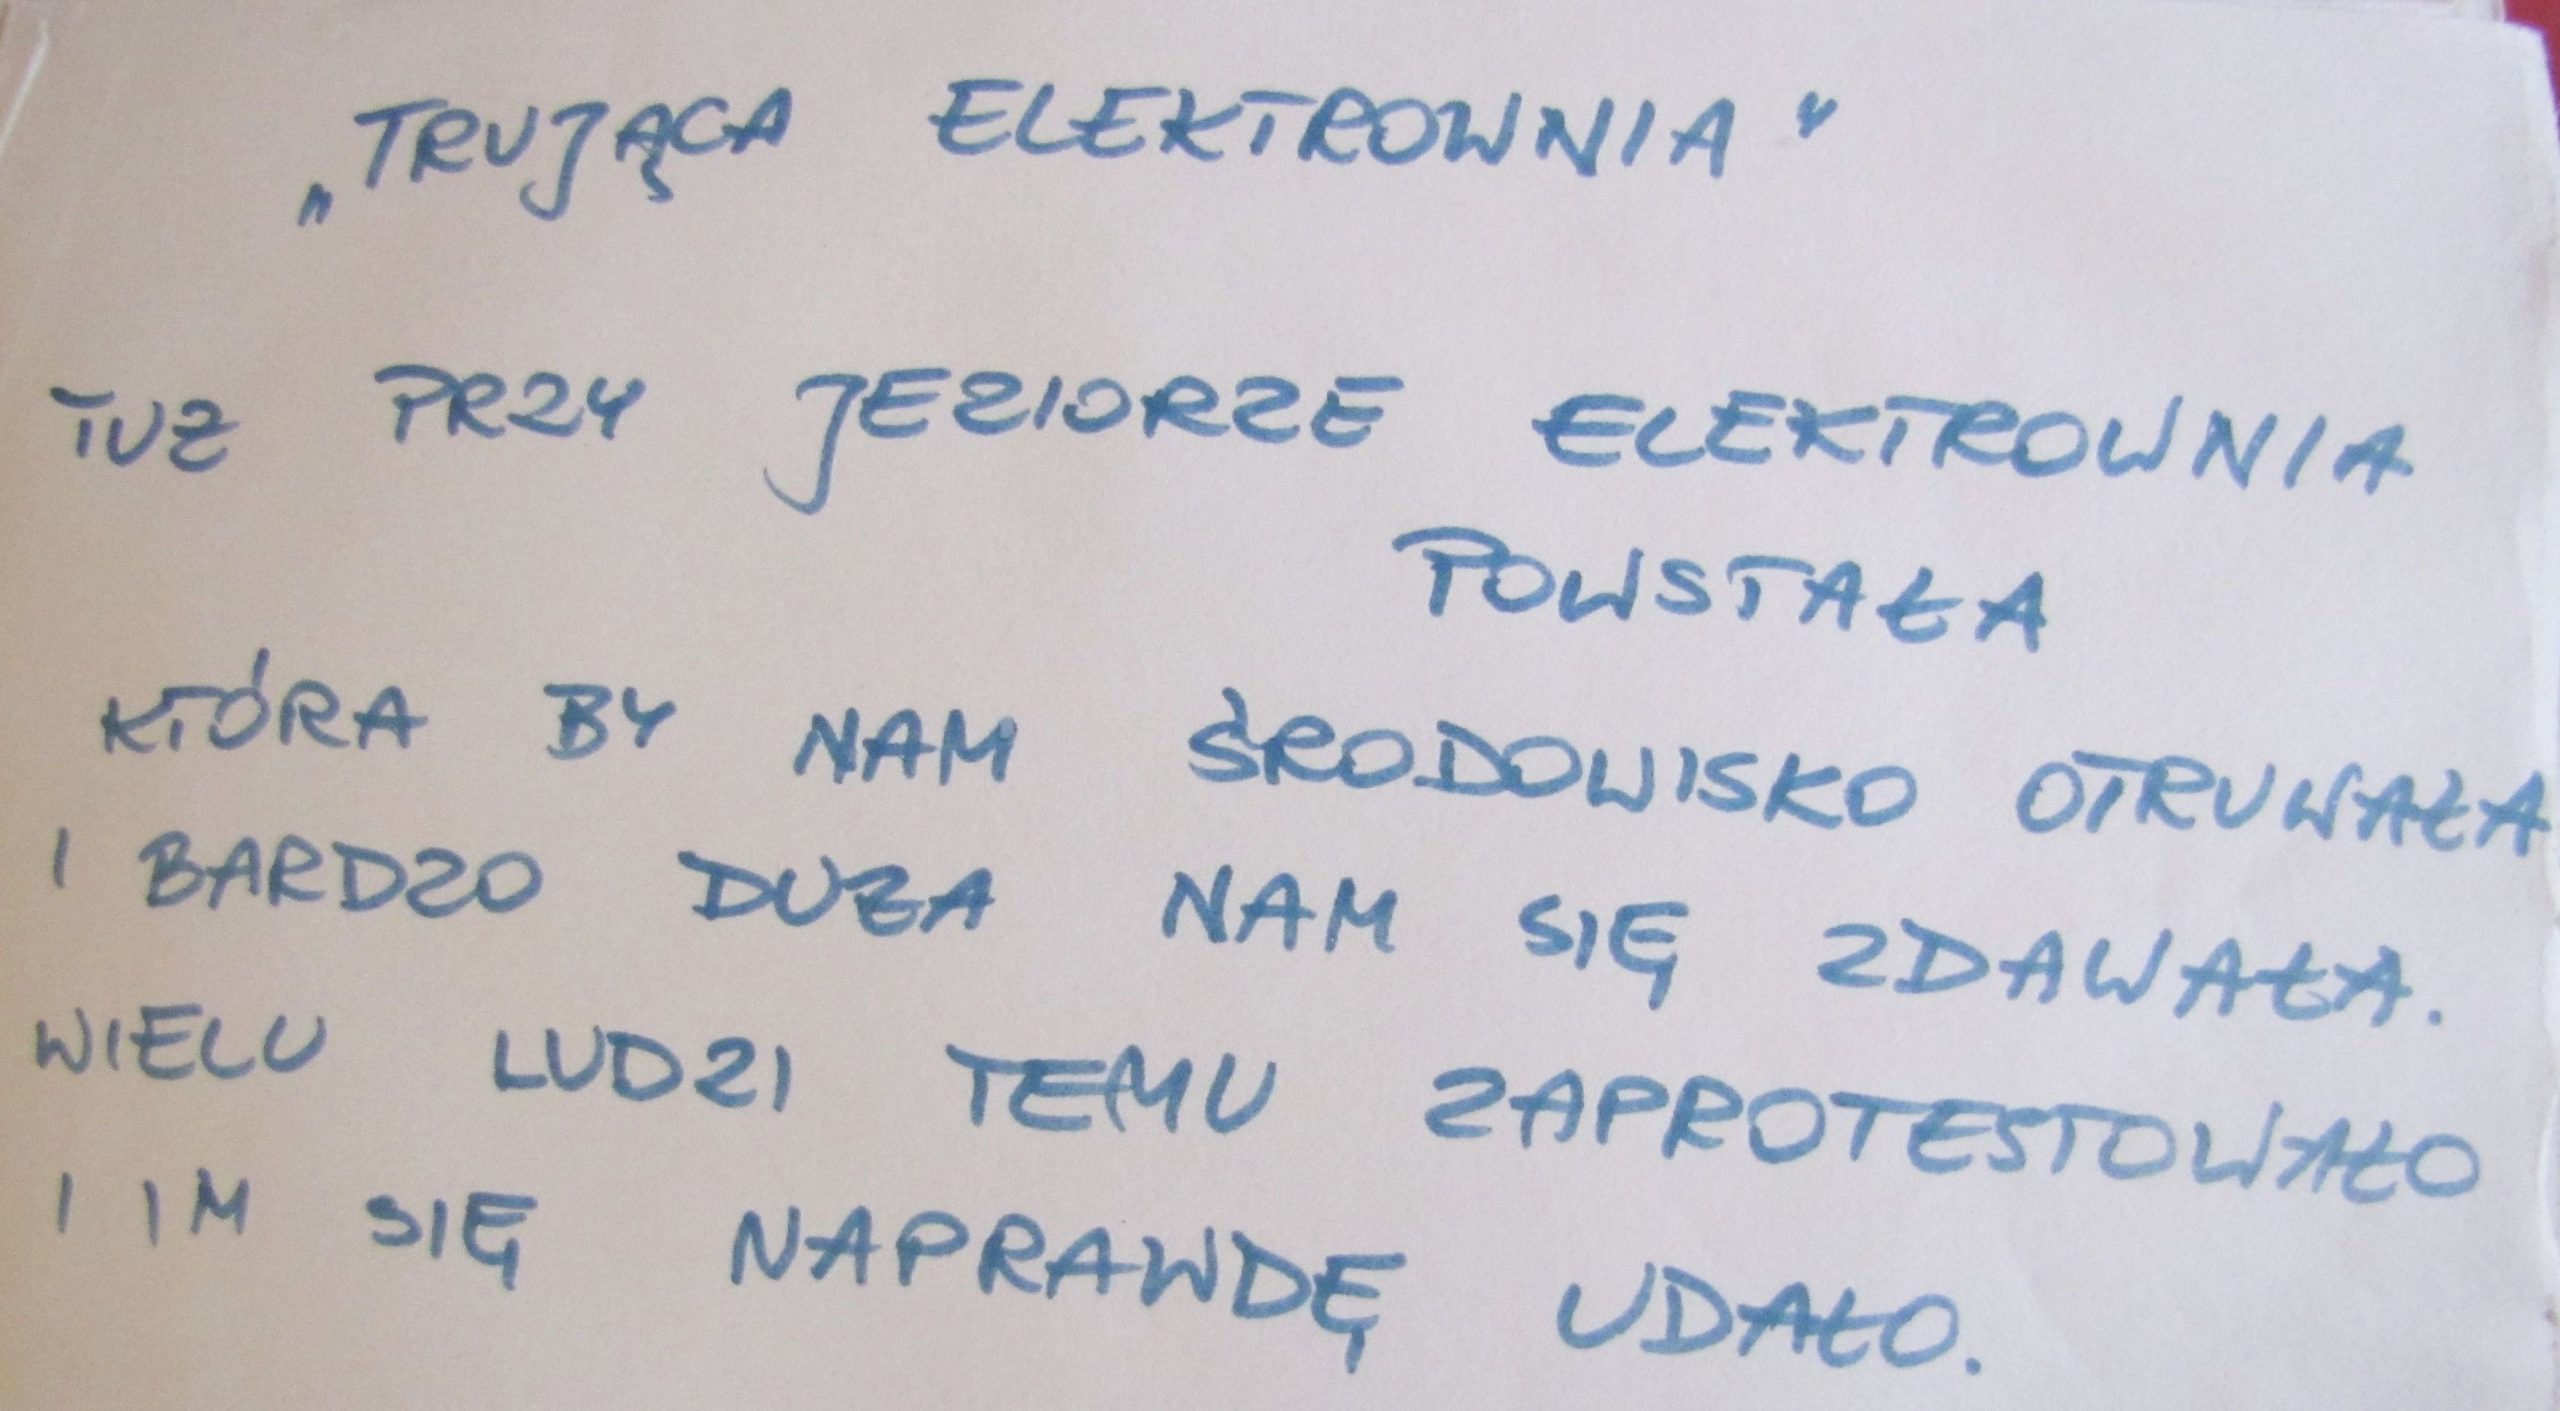 „TRUJĄCA ELEKTROWNIA"
TUŻ PRZY JEZIORZE ELEKTROWNIA
POWSTAŁA
KTÓRA BY NAM ŚRODOWISKO OTRUWAŁA
I BARDZO DUŻA NAM SIĘ ZDAWAŁA.
WIELU LUDZI TEMU ZAPROTESTOWAŁO
I IM SIĘ NAPRAWDĘ UDAŁO.